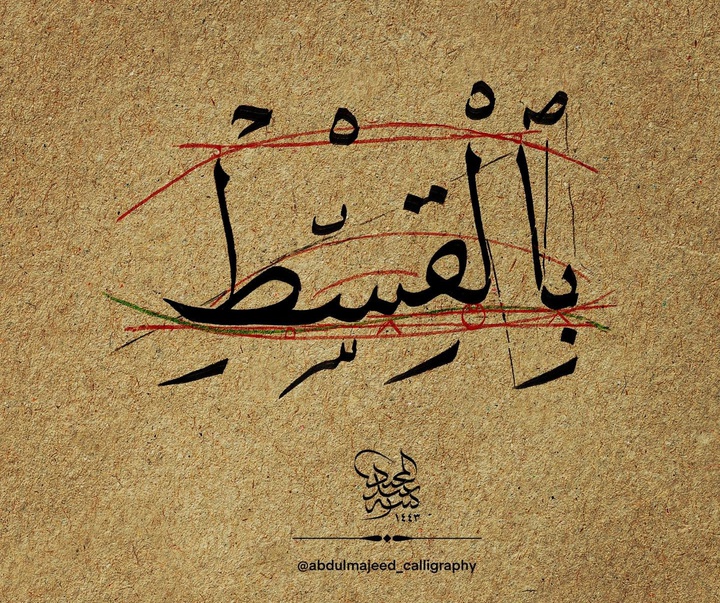 بِٱلْقِسْطِ
كتبه عبد المجيد
١٤٤٣
@abdulmajeed_calligraphy